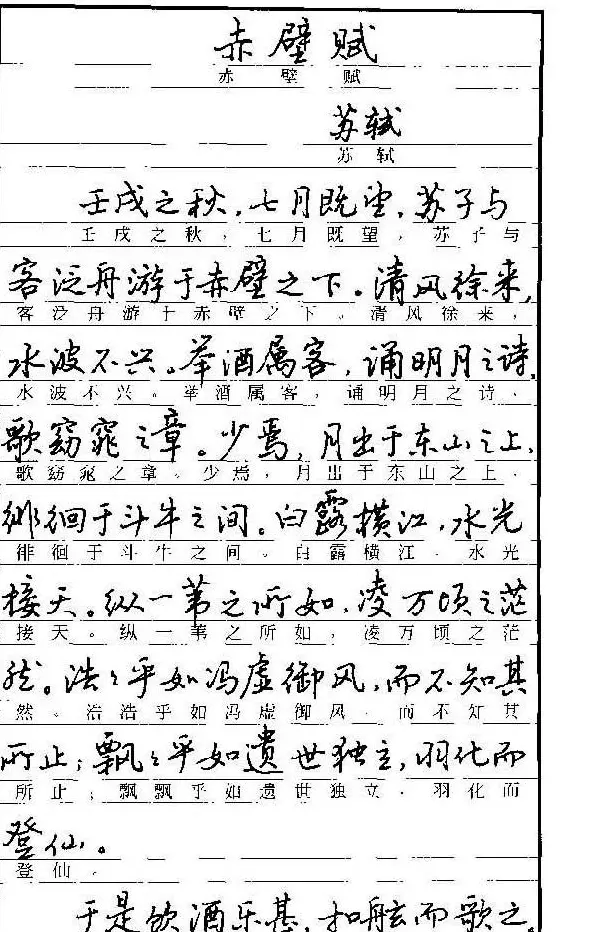 赤壁赋
赤壁赋
苏轼
苏轼
壬戌之秋，七月既望，苏子与
壬戌之秋，七月既望，苏子与
客泛舟游于赤壁之下。清风徐来，
客泛舟游于赤壁之下。清风徐来，
水波不兴。举酒属客，诵明月之诗，
水波不兴。举酒属客，诵明月之诗，
歌窈窕之章。少焉，月出于东山之上，
歌窈窕之章。少焉，月出于东山之上，
徘徊于斗牛之间。白露横江，水光
徘徊于斗牛之间。白露横江，水光
接天。纵一苇之所如，凌万顷之茫
接天。纵一苇之所如，凌万顷之茫
然。浩々乎如冯虚御风，而不知其
然。浩浩乎如冯虚御风，而不知其
所止；飘々乎如遗世独立，羽化而
所止；飘飘乎如遗世独立，羽化而
登仙。
登仙。
于是饮酒乐甚，扣舷而歌之。